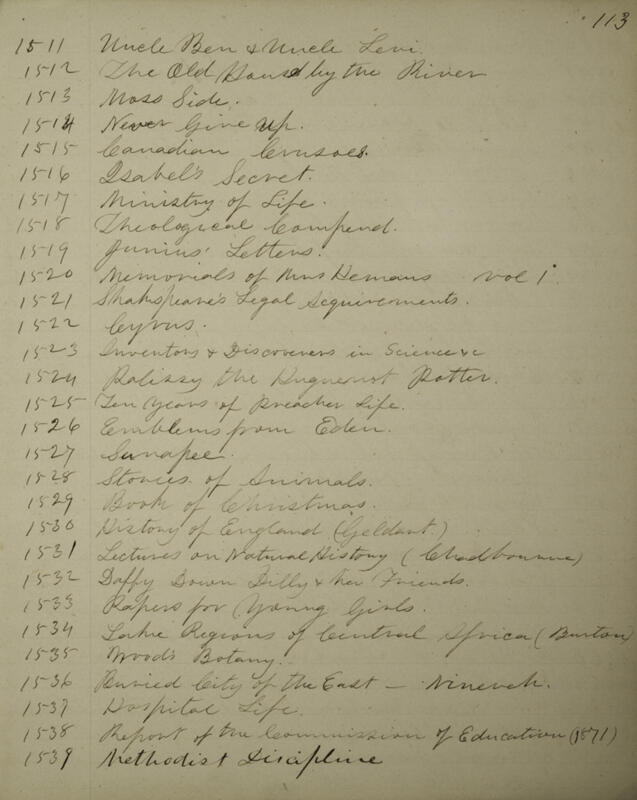 113
1511 Uncle Ben & Uncle Levi.
1512 The Old House by the River
1513 Moss Side.
1514 Never Give Up.
1515 Canadian Crusoes.
1516 Isabel's Secret.
1517 Ministry of Life.
1518 Theological Compend.
1519 Junius' Letters.
1520 Memorials of Mrs Hemans vol 1.
1521 Shakspeare's Legal Acquirements.
1522 Cyrus.
1523 Inventors & Discoverers in Science &c
1524 Palissy the Huguenot Potter.
1525 Ten Years of Preacher Life.
1526 Emblems from Eden.
1527 Sunapee.
1528 Stories of Animals.
1529 Book of Christmas.
1530 History of England (Geldart.)
1531 Lectures on Natural History (Chadbourne)
1532 Daffy Down Dilly & her Friends.
1533 Papers for Young Girls.
1534 Lake Regions of Central Africa (Burton)
1535 Wood's Botany.
1536 Buried City of the East — Nineveh.
1537 Hospital Life.
1538 Report of the Commission of Education (1871)
1539 Methodist Discipline